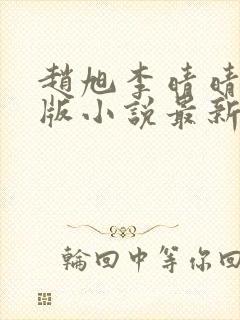 趙旭李晴晴
版小說最新
輪回中等你回